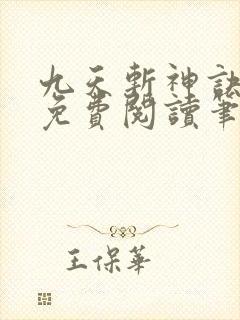 九天斬神訣
免費閱讀筆
王保華